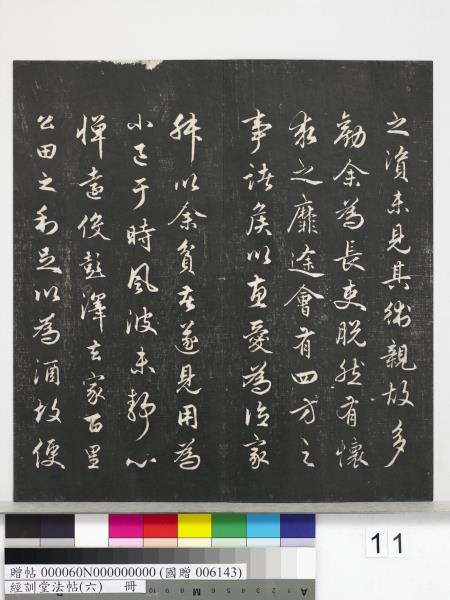 之資未見其術親故多
勸余為長吏脫然有懷
求之靡途會有四方之
事諸侯以惠愛為德家
叔以余貧苦遂見用為
小邑于時風波未靜心
憚遠役彭澤去家百里
公田之利足以為酒故便
11
贈帖 000060N000000000 (國贈 006143)
經訓堂法帖(六) 冊